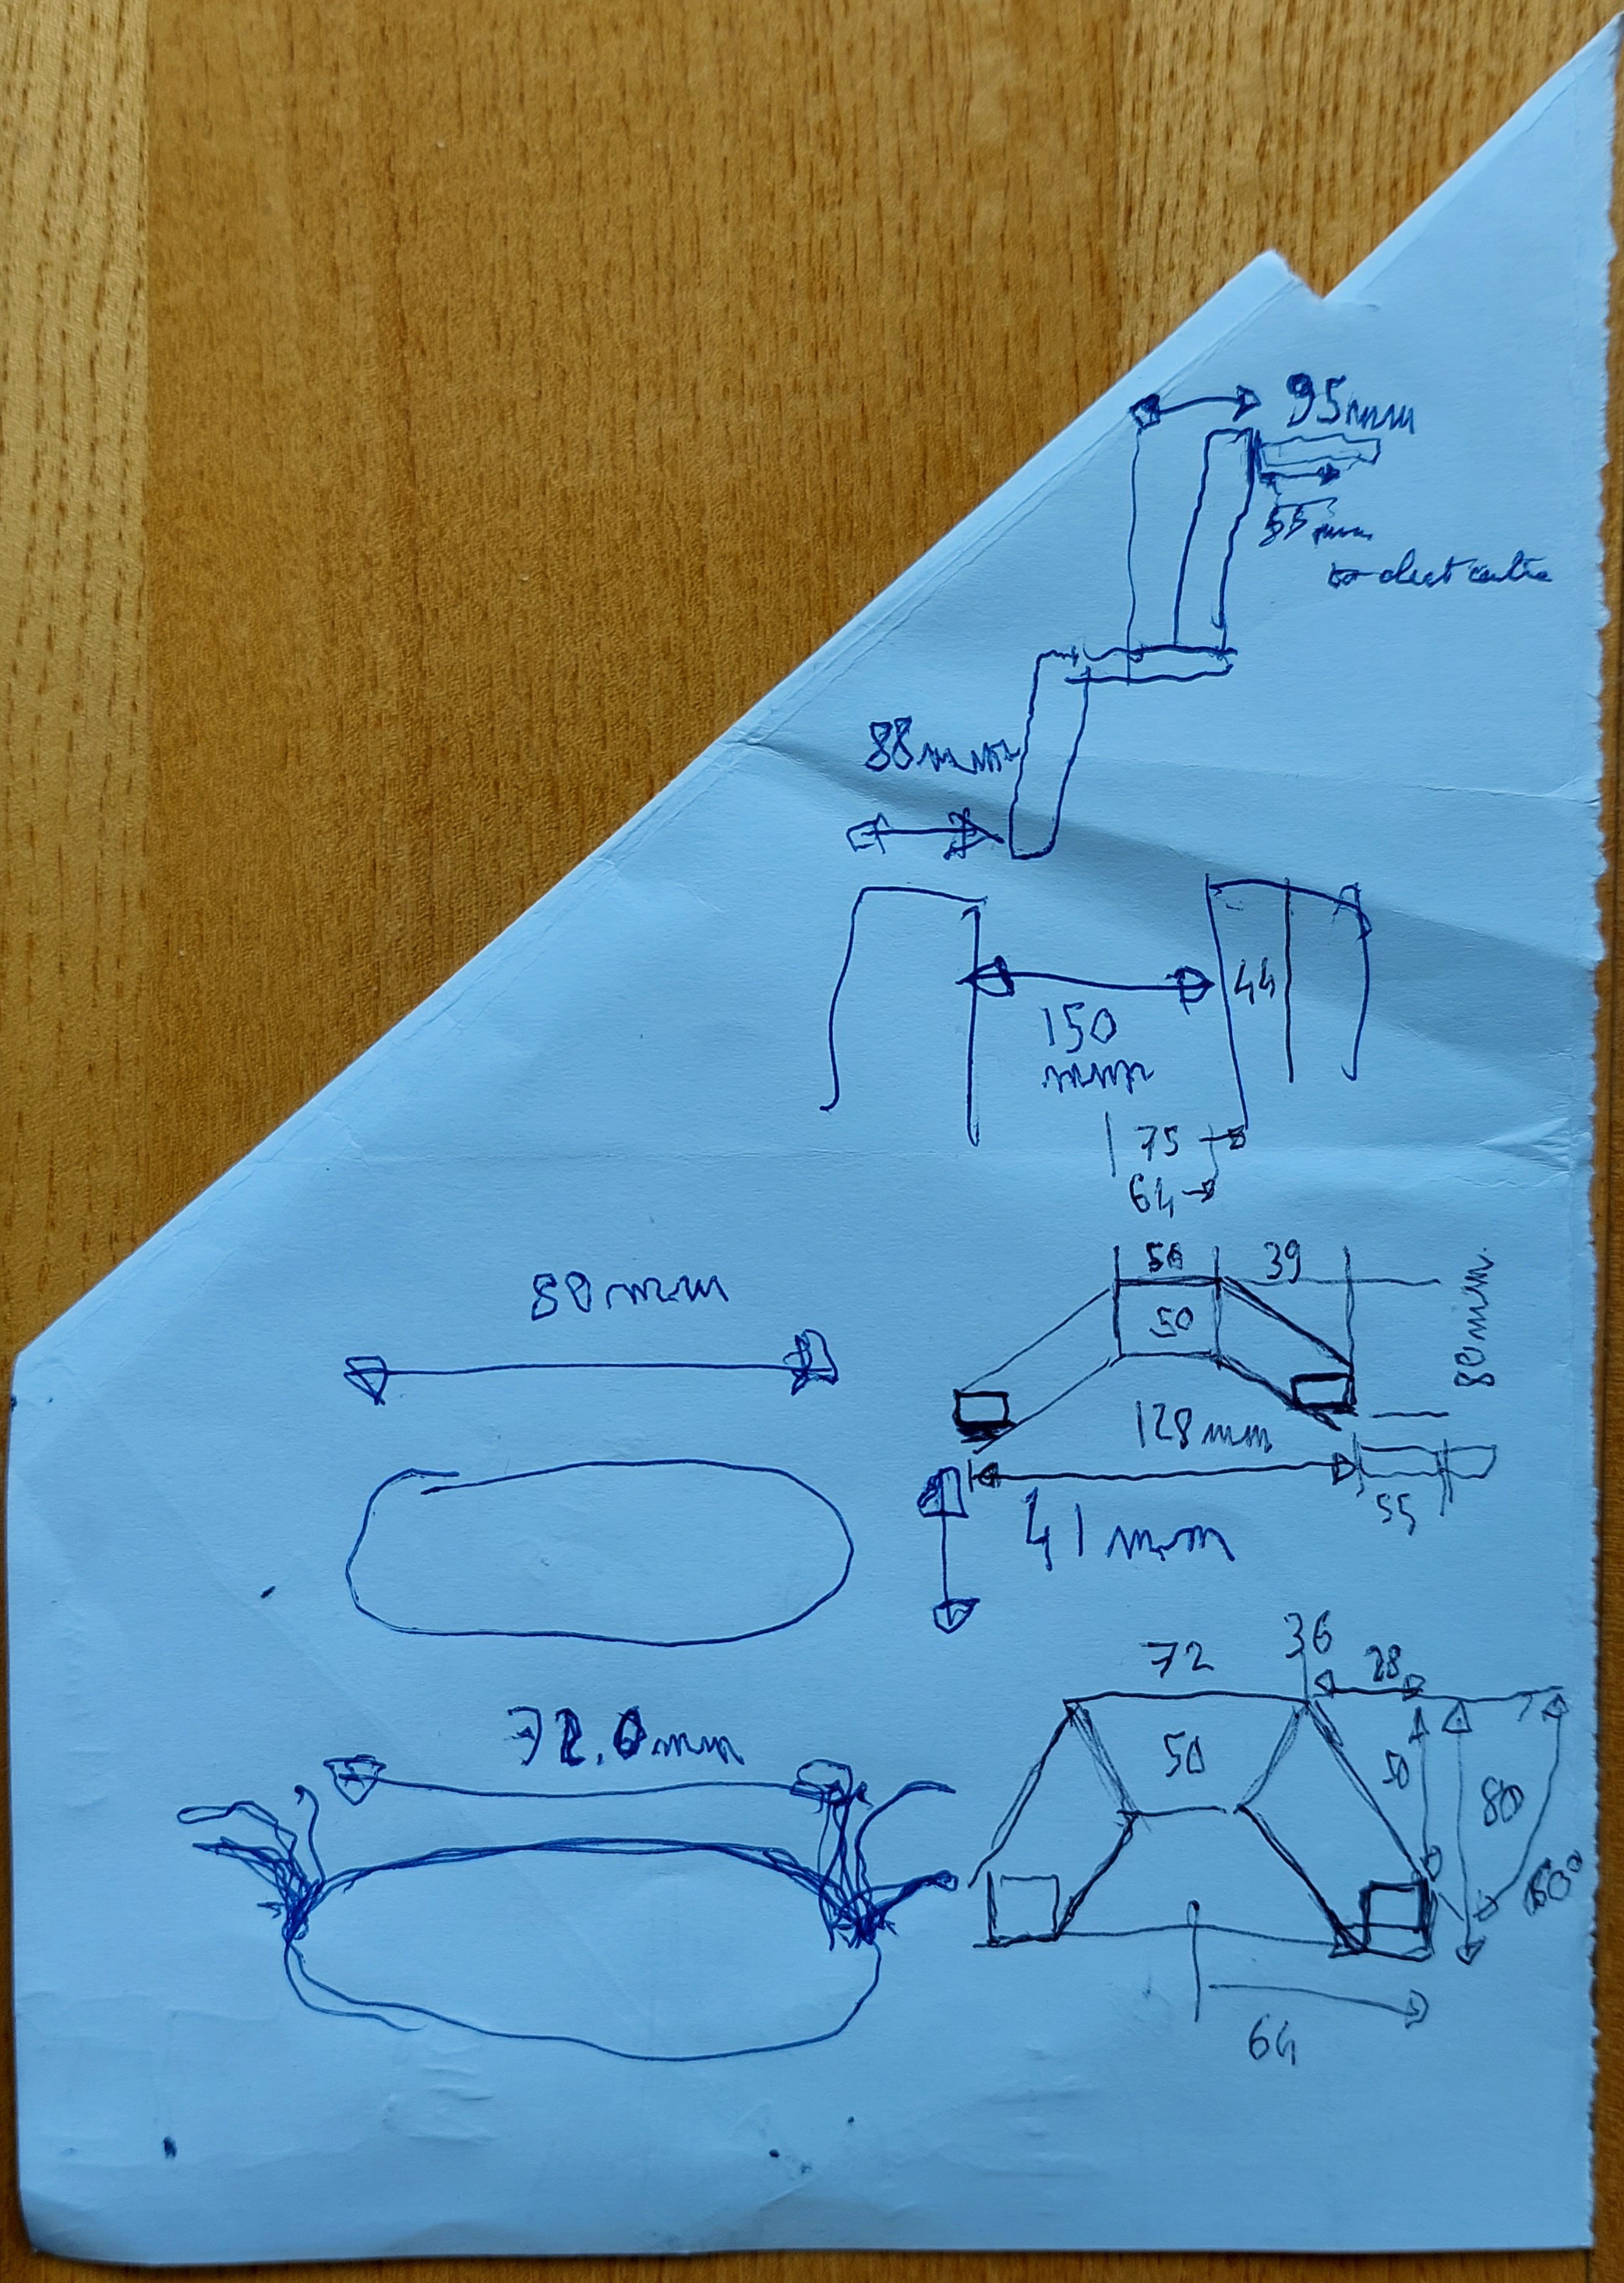 95mm
55mm
88mm
44
150
mm
75
64
50 39
50
80mm
80mm
128mm
55
41mm
36
72 28
72.0mm
50 50 80
60°
64